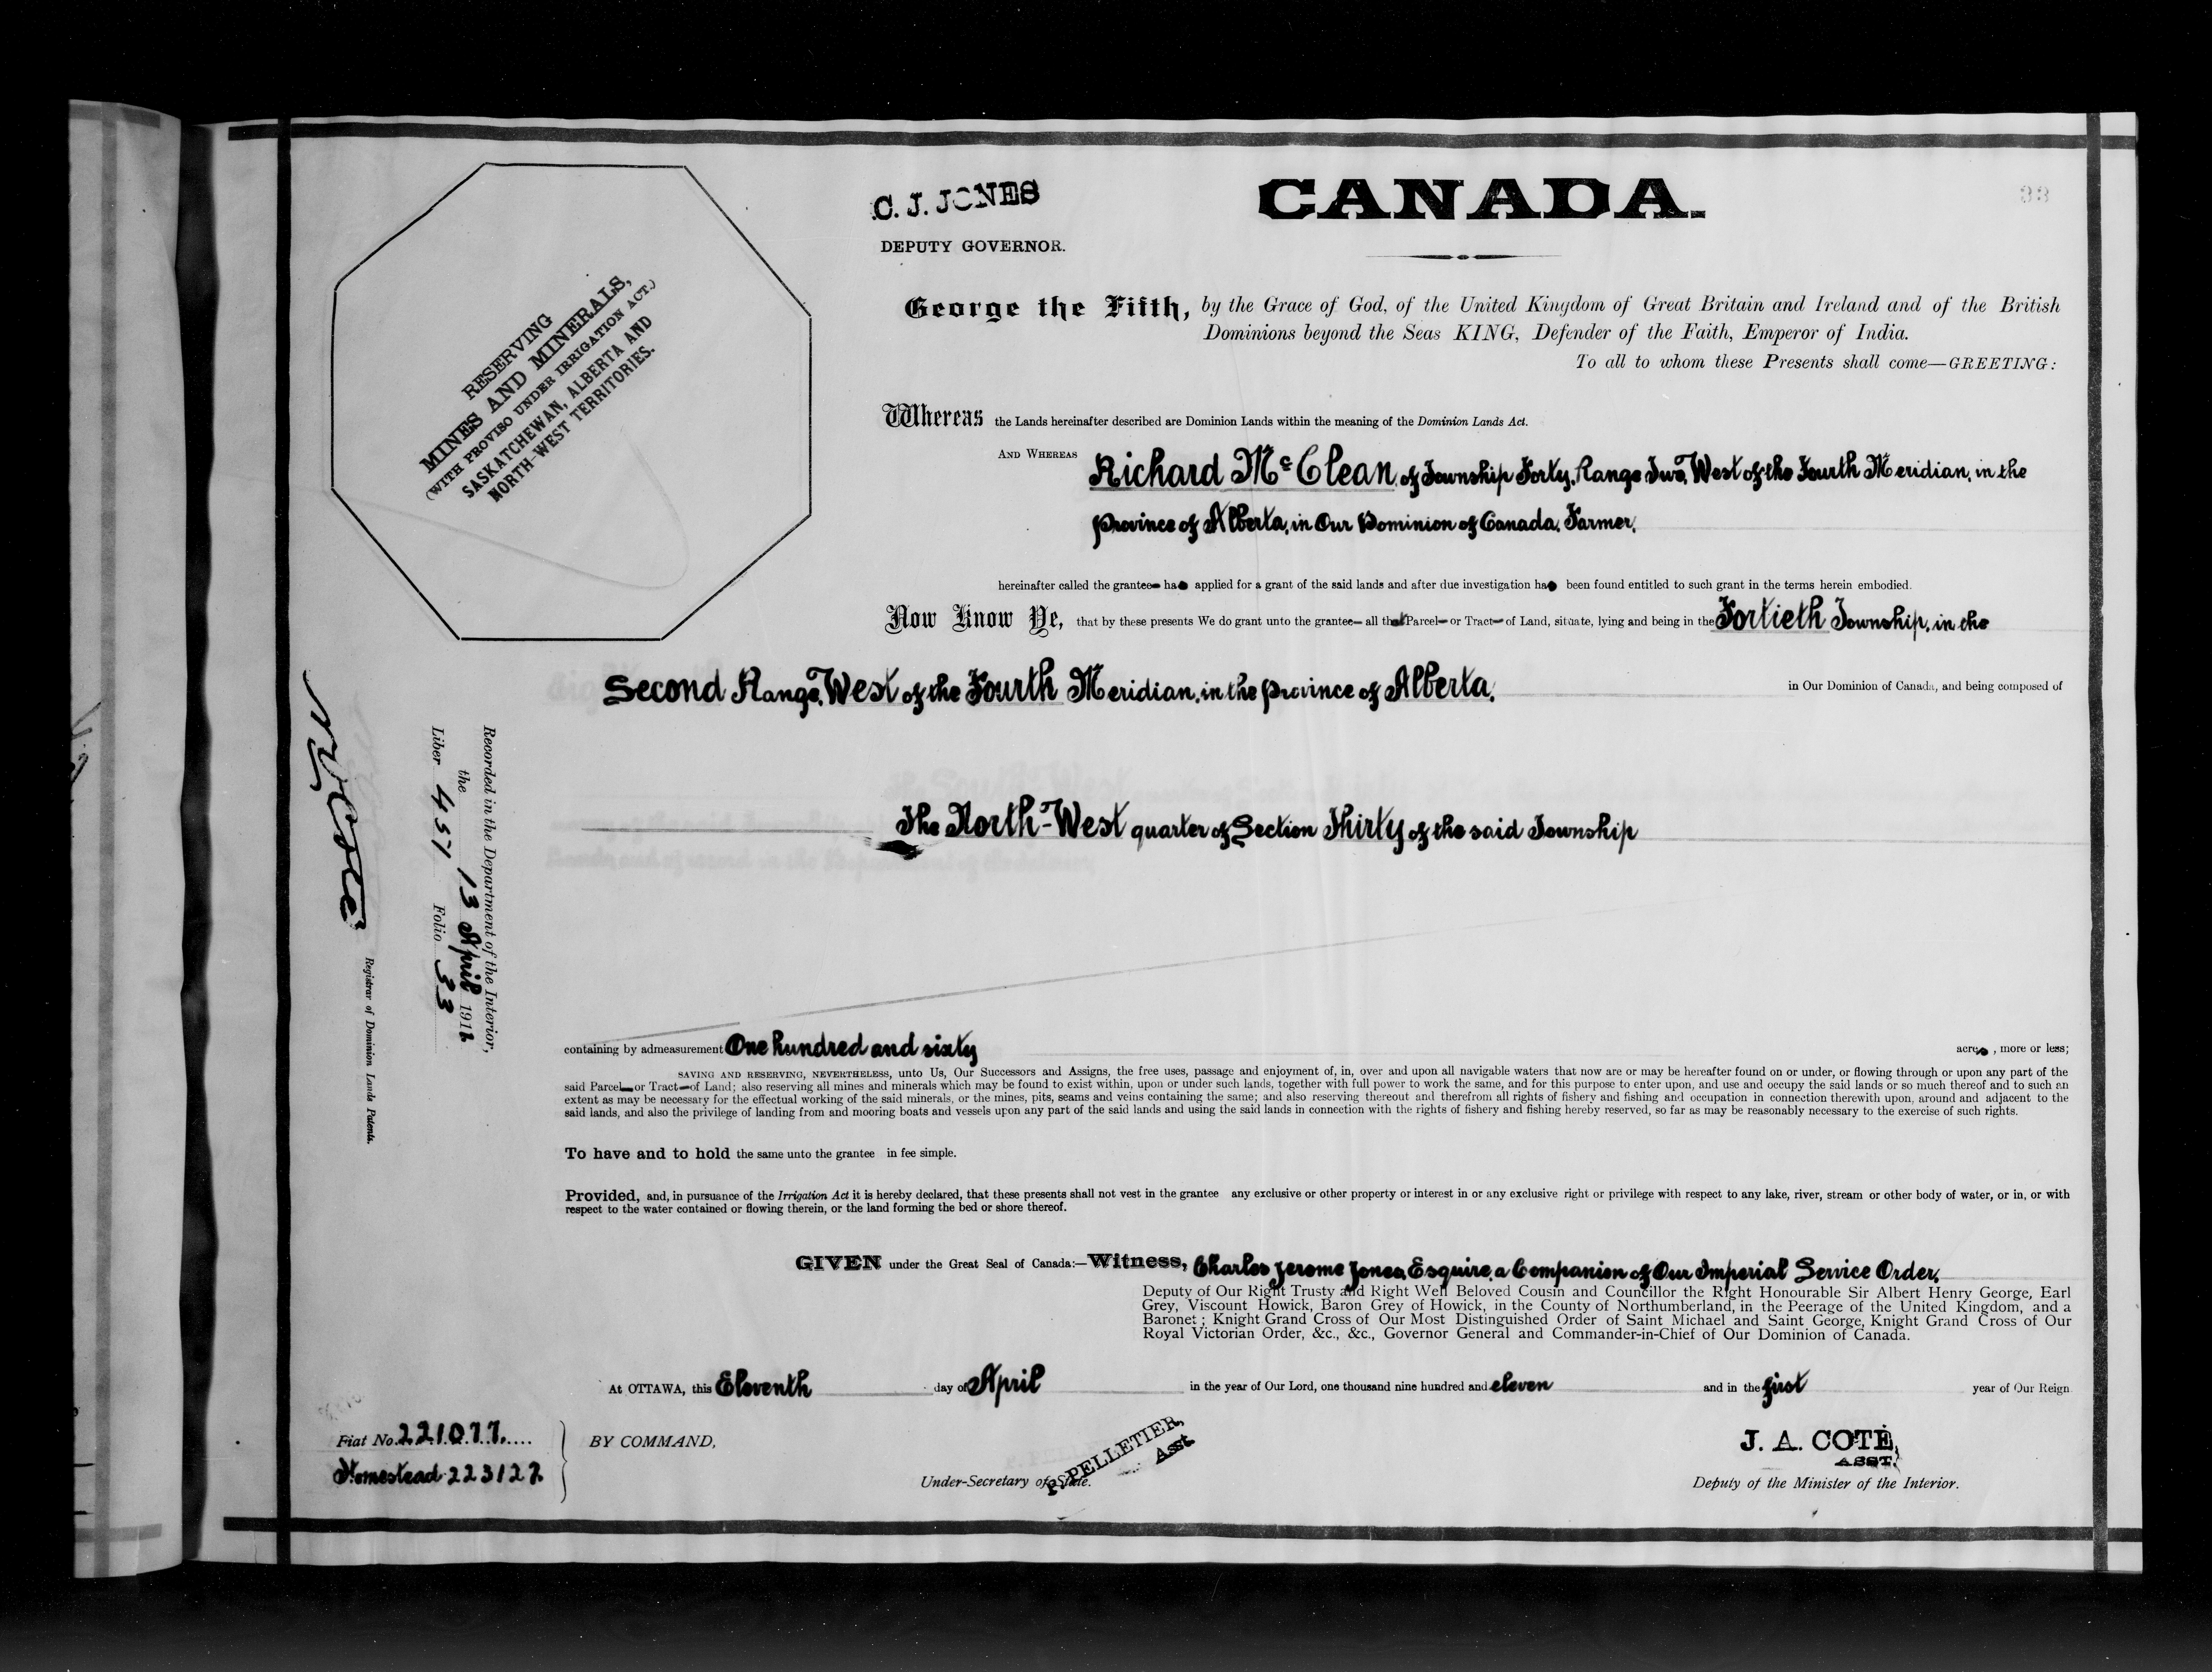 C. J. JONES
DEPUTY GOVERNOR.
CANADA.
33
RESERVING
MINES AND MINERALS,
(WITH PROVISO UNDER IRRIGATION ACT.)
SASKATCHEWAN, ALBERTA AND
NORTH-WEST TERRITORIES.
George the Fifth, by the Grace of God, of the United Kingdom of Great Britain and Ireland and of the British
Dominions beyond the Seas KING, Defender of the Faith, Emperor of India.
To all to whom these Presents shall come—GREETING:
Whereas the Lands hereinafter described are Dominion Lands within the meaning of the Dominion Lands Act.
AND WHEREAS Richard McClean, of Township Forty, Range Two, West of the Fourth Meridian, in the
Province of Alberta, in Our Dominion of Canada, Farmer,
hereinafter called the grantee has applied for a grant of the said lands and after due investigation has been found entitled to such grant in the terms herein embodied.
Now Know Ye, that by these presents We do grant unto the grantee— all that Parcel— or Tract— of Land, situate, lying and being in the Fortieth Township, in the
Second Range, West of the Fourth Meridian, in the Province of Alberta, in Our Dominion of Canada, and being composed of
The North-West quarter of Section Thirty of the said Township
Recorded in the Department of the Interior,
the 13 April 1911
Liber 451 Folio 33
Registrar of Dominion Lands Patents.
containing by admeasurement One hundred and sixty acres, more or less;
SAVING AND RESERVING, NEVERTHELESS, unto Us, Our Successors and Assigns, the free uses, passage and enjoyment of, in, over and upon all navigable waters that now are or may be hereafter found on or under, or flowing through or upon any part of the
said Parcel— or Tract— of Land; also reserving all mines and minerals which may be found to exist within, upon or under such lands, together with full power to work the same, and for this purpose to enter upon, and use and occupy the said lands or so much thereof and to such an
extent as may be necessary for the effectual working of the said minerals, or the mines, pits, seams and veins containing the same; and also reserving thereout and therefrom all rights of fishery and fishing and occupation in connection therewith upon, around and adjacent to the
said lands, and also the privilege of landing from and mooring boats and vessels upon any part of the said lands and using the said lands in connection with the rights of fishery and fishing hereby reserved, so far as may be reasonably necessary to the exercise of such rights.
To have and to hold the same unto the grantee in fee simple.
Provided, and, in pursuance of the Irrigation Act it is hereby declared, that these presents shall not vest in the grantee any exclusive or other property or interest in or any exclusive right or privilege with respect to any lake, river, stream or other body of water, or in, or with
respect to the water contained or flowing therein, or the land forming the bed or shore thereof.
GIVEN under the Great Seal of Canada:—Witness, Charles Jerome Jones, Esquire, a Companion of Our Imperial Service Order,
Deputy of Our Right Trusty and Right Well Beloved Cousin and Councillor the Right Honourable Sir Albert Henry George, Earl
Grey, Viscount Howick, Baron Grey of Howick, in the County of Northumberland, in the Peerage of the United Kingdom, and a
Baronet; Knight Grand Cross of Our Most Distinguished Order of Saint Michael and Saint George, Knight Grand Cross of Our
Royal Victorian Order, &c., &c., Governor General and Commander-in-Chief of Our Dominion of Canada.
At OTTAWA, this Eleventh day of April in the year of Our Lord, one thousand nine hundred and eleven and in the first year of Our Reign
Fiat No. 221077.
Homestead 223127
BY COMMAND,
P. PELLETIER,
Asst.
Under-Secretary of State.
J. A. COTÉ,
ASST.
Deputy of the Minister of the Interior.